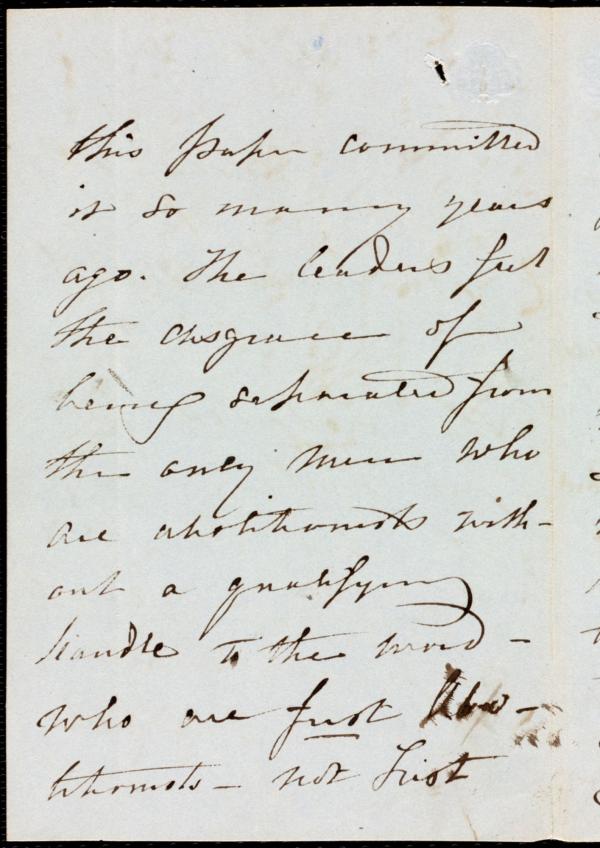 this paper committed
it so many years
ago. The leaders feel
the disgrace of
being separated from
the only men who
are abolitionists with-
out a qualifying
handle to the word -
who are first Abo-
litionists - not first